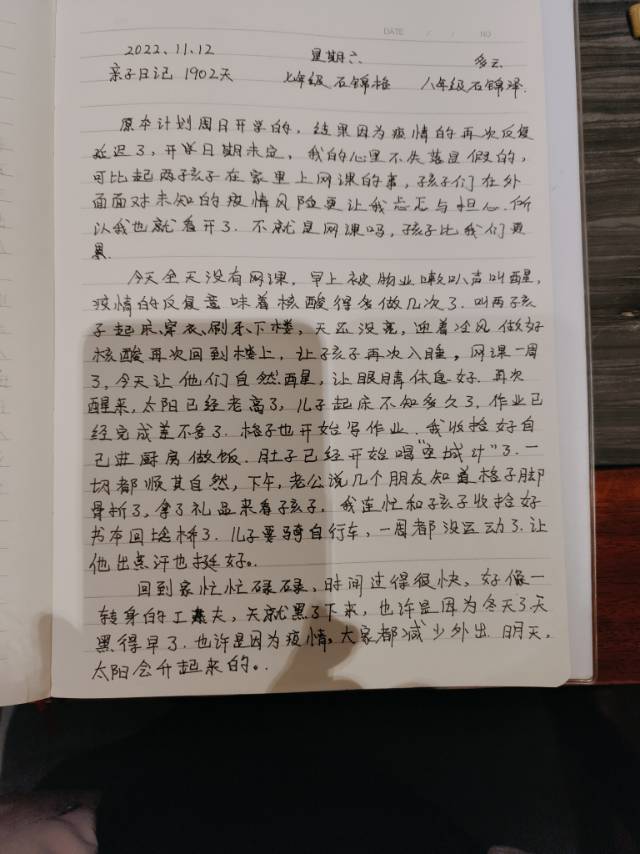 DATE / / NO
2022.11.12 星期六 多云
亲子日记 1902天 七年级 石锦格 八年级 石锦泽.
原本计划周日开学的,结果因为疫情的再次反复
延迟了,开学日期未定,我的心里不失落是假的,
可比起两孩子在家里上网课的事,孩子们在外
面面对未知的疫情风险更让我忐忑与担心.所
以我也就看开了.不就是网课吗,孩子比我们更
累.
今天全天没有网课,早上被物业喇叭声叫醒,
疫情的反复意味着核酸得多做几次了.叫两孩
子起床穿衣刷牙下楼,天还没亮,迎着冷风做好
核酸再次回到楼上,让孩子再次入睡,网课一周
了,今天让他们自然醒,让眼睛休息好.再次
醒来,太阳已经老高了,儿子起床不知多久了,作业已
经完成差不多了.格子也开始写作业.我收拾好自
己进厨房做饭.肚子已经开始唱"空城计"了.一
切都顺其自然,下午,老公说几个朋友知道格子脚
骨折了,拿了礼品来看孩子.我连忙和孩子收拾好
书本回娘桥了.儿子要骑自行车,一周都没运动了.让
他出点汗也挺好。.
回到家忙忙碌碌,时间过得很快,好像一
转身的工夫,天就黑了下来,也许是因为冬天了天
黑得早了.也许是因为疫情,大家都减少外出.明天,
太阳会升起来的。.